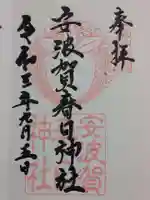 奉拝
安波賀春日神社
令和三年九月三日
安波賀
神社